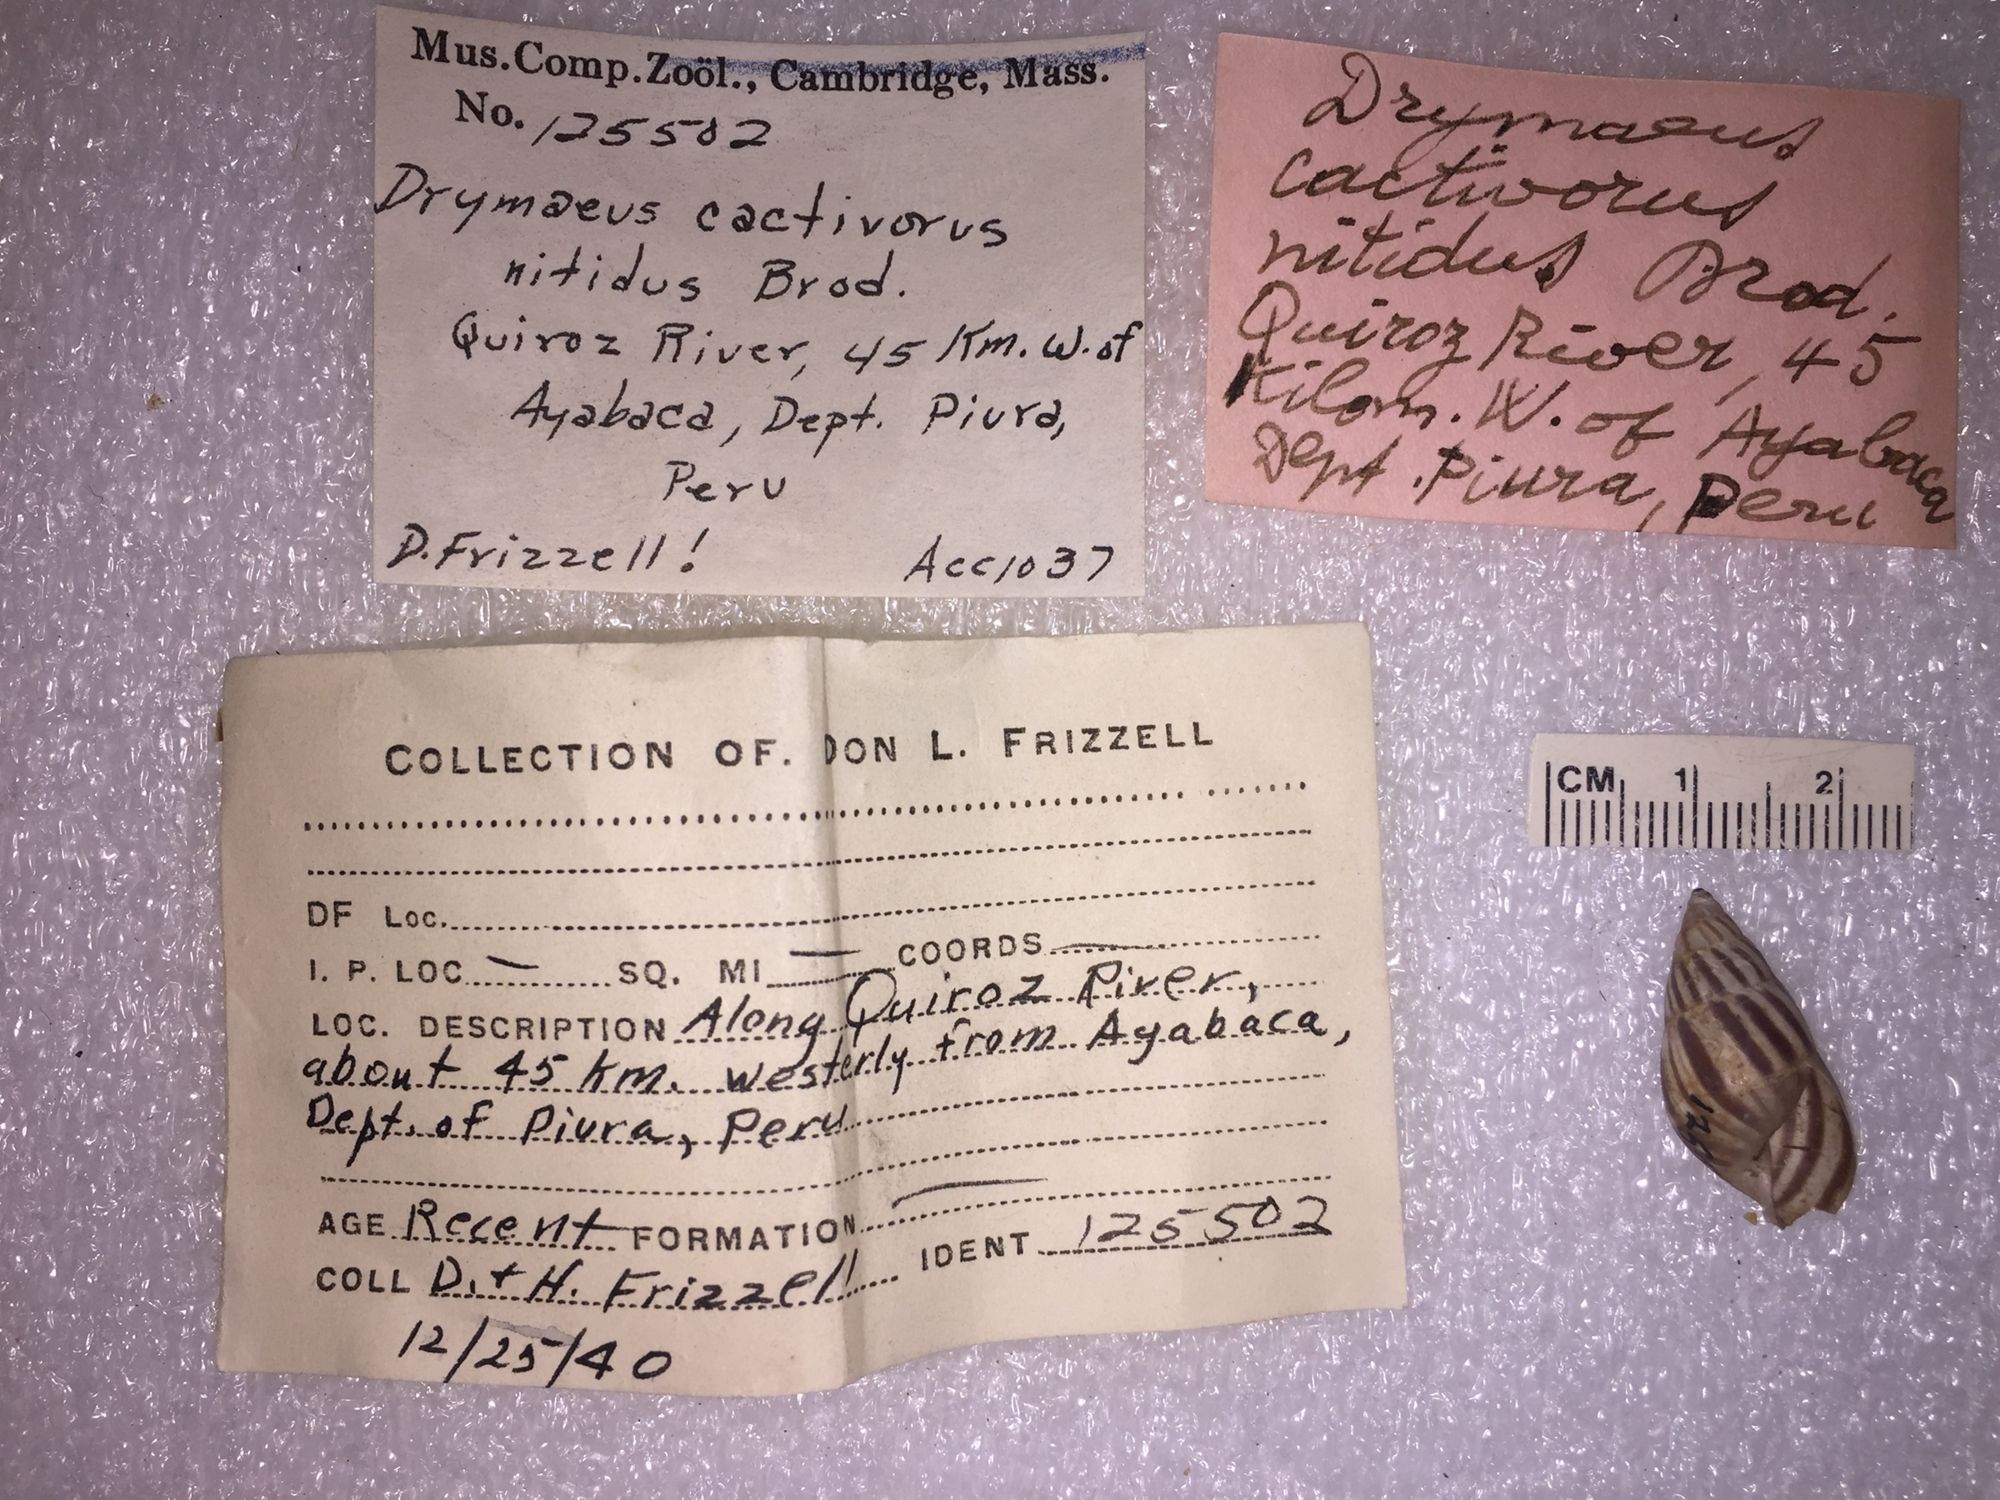 Mus.Comp.Zoöl., Cambridge, Mass.
No. 125502
Drymaeus cactivorus
nitidus Brod.
Quiroz River, 45 Km. W. of
Ayabaca, Dept. Piura,
Peru
D. Frizzell! Acc 1037
Drymaeus
cactivorus
nitidus Brod.
Quiroz River, 45
Kilom. W. of Ayabaca
Dept. Piura, Peru
COLLECTION OF. DON L. FRIZZELL
DF LOC.
I. P. LOC — SQ. MI — COORDS —
LOC. DESCRIPTION Along Quiroz River,
about 45 km. westerly from Ayabaca,
Dept. of Piura, Peru
AGE Recent FORMATION —
COLL D. + H. Frizzell IDENT 125502
12/25/40
CM 1 2